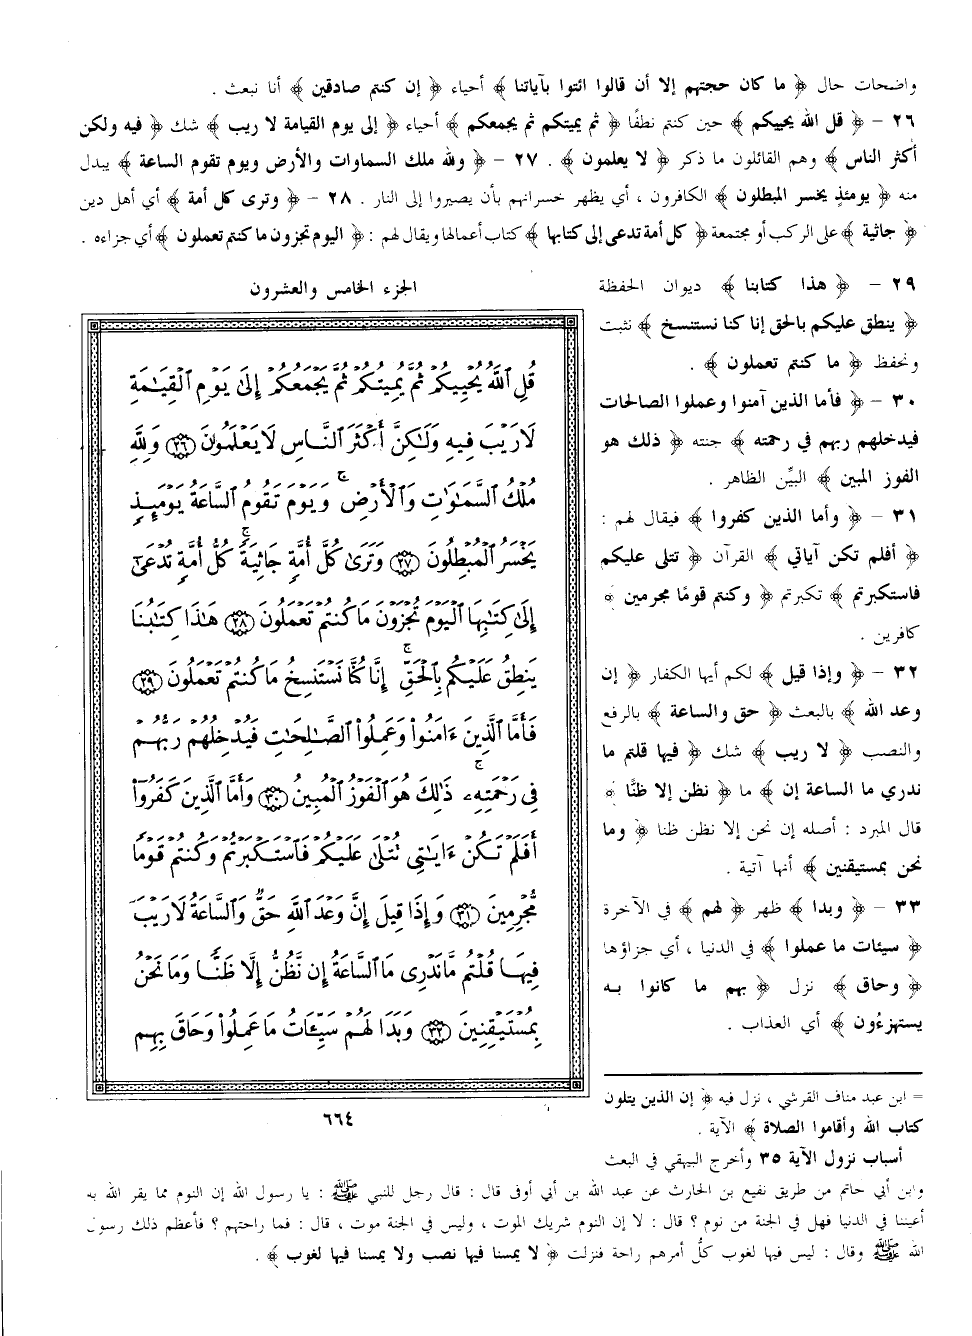 واضحات حال ﴿ ما كان حجتهم إلا أن قالوا ائتوا بآياتنا ﴾ أحياء ﴿ إن كنتم صادقين ﴾ أنا نبعث .
٢٦ - ﴿ قل الله يحييكم ﴾ حين كنتم نطفًا ﴿ ثم يميتكم ثم يجمعكم ﴾ أحياء ﴿ إلى يوم القيامة لا ريب ﴾ شك ﴿ فيه ولكن
أكثر الناس ﴾ وهم القائلون ما ذكر ﴿ لا يعلمون ﴾ . ٢٧ - ﴿ ولله ملك السماوات والأرض ويوم تقوم الساعة ﴾ يبدل
منه ﴿ يومئذٍ يخسر المبطلون ﴾ الكافرون ، أي يظهر خسرانهم بأن يصيروا إلى النار . ٢٨ - ﴿ وترى كل أمة ﴾ أي أهل دين
﴿ جاثية ﴾ على الركب أو مجتمعة ﴿ كل أمة تدعى إلى كتابها ﴾ كتاب أعمالها ويقال لهم : ﴿ اليوم تجزون ما كنتم تعملون ﴾ أي جزاءه .
٢٩ - ﴿ هذا كتابنا ﴾ ديوان الحفظة
﴿ ينطق عليكم بالحق إنا كنا نستنسخ ﴾ نثبت
ونحفظ ﴿ ما كنتم تعملون ﴾ .
٣٠ - ﴿ فأما الذين آمنوا وعملوا الصالحات
فيدخلهم ربهم في رحمته ﴾ جنته ﴿ ذلك هو
الفوز المبين ﴾ البيِّن الظاهر .
٣١ - ﴿ وأما الذين كفروا ﴾ فيقال لهم :
﴿ أفلم تكن آياتي ﴾ القرآن ﴿ تتلى عليكم
فاستكبرتم ﴾ تكبرتم ﴿ وكنتم قومًا مجرمين ﴾
كافرين .
٣٢ - ﴿ وإذا قيل ﴾ لكم أيها الكفار ﴿ إن
وعد الله ﴾ بالبعث ﴿ حق والساعة ﴾ بالرفع
والنصب ﴿ لا ريب ﴾ شك ﴿ فيها قلتم ما
ندري ما الساعة إن ﴾ ما ﴿ نظن إلا ظنًّا ﴾
قال المبرد : أصله إن نحن إلا نظن ظنا ﴿ وما
نحن بمستيقنين ﴾ أنها آتية .
٣٣ - ﴿ وبدا ﴾ ظهر ﴿ لهم ﴾ في الآخرة
﴿ سيئات ما عملوا ﴾ في الدنيا ، أي جزاؤها
﴿ وحاق ﴾ نزل ﴿ بهم ما كانوا به
يستهزءُون ﴾ أي العذاب .
الجزء الخامس والعشرون
قُلِ ٱللَّهُ يُحْيِيكُمْ ثُمَّ يُمِيتُكُمْ ثُمَّ يَجْمَعُكُمْ إِلَىٰ يَوْمِ ٱلْقِيَـٰمَةِ
لَا رَيْبَ فِيهِ وَلَـٰكِنَّ أَكْثَرَ ٱلنَّاسِ لَا يَعْلَمُونَ ۝٢٦ وَلِلَّهِ
مُلْكُ ٱلسَّمَـٰوَٰتِ وَٱلْأَرْضِ ۚ وَيَوْمَ تَقُومُ ٱلسَّاعَةُ يَوْمَئِذٍ
يَخْسَرُ ٱلْمُبْطِلُونَ ۝٢٧ وَتَرَىٰ كُلَّ أُمَّةٍ جَاثِيَةً ۚ كُلُّ أُمَّةٍ تُدْعَىٰٓ
إِلَىٰ كِتَـٰبِهَا ٱلْيَوْمَ تُجْزَوْنَ مَا كُنتُمْ تَعْمَلُونَ ۝٢٨ هَـٰذَا كِتَـٰبُنَا
يَنطِقُ عَلَيْكُم بِٱلْحَقِّ ۚ إِنَّا كُنَّا نَسْتَنسِخُ مَا كُنتُمْ تَعْمَلُونَ ۝٢٩
فَأَمَّا ٱلَّذِينَ ءَامَنُوا۟ وَعَمِلُوا۟ ٱلصَّـٰلِحَـٰتِ فَيُدْخِلُهُمْ رَبُّهُمْ
فِى رَحْمَتِهِۦ ۚ ذَٰلِكَ هُوَ ٱلْفَوْزُ ٱلْمُبِينُ ۝٣٠ وَأَمَّا ٱلَّذِينَ كَفَرُوٓا۟
أَفَلَمْ تَكُنْ ءَايَـٰتِى تُتْلَىٰ عَلَيْكُمْ فَٱسْتَكْبَرْتُمْ وَكُنتُمْ قَوْمًا
مُّجْرِمِينَ ۝٣١ وَإِذَا قِيلَ إِنَّ وَعْدَ ٱللَّهِ حَقٌّ وَٱلسَّاعَةُ لَا رَيْبَ
فِيهَا قُلْتُم مَّا نَدْرِى مَا ٱلسَّاعَةُ إِن نَّظُنُّ إِلَّا ظَنًّا وَمَا نَحْنُ
بِمُسْتَيْقِنِينَ ۝٣٢ وَبَدَا لَهُمْ سَيِّـَٔاتُ مَا عَمِلُوا۟ وَحَاقَ بِهِم
٦٦٤
= ابن عبد مناف القرشي ، نزل فيه ﴿ إن الذين يتلون
كتاب الله وأقاموا الصلاة ﴾ الآية .
أسباب نزول الآية ٣٥ وأخرج البيهقي في البعث
وابن أبي حاتم من طريق نفيع بن الحارث عن عبد الله بن أبي أوفى قال : قال رجل للنبي ﷺ : يا رسول الله إن النوم مما يقر الله به
أعيننا في الدنيا فهل في الجنة من نوم ؟ قال : لا إن النوم شريك الموت ، وليس في الجنة موت ، قال : فما راحتهم ؟ فأعظم ذلك رسول
الله ﷺ وقال : ليس فيها لغوب كلُّ أمرهم راحة فنزلت ﴿ لا يمسنا فيها نصب ولا يمسنا فيها لغوب ﴾ .